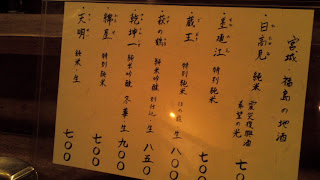 宮城・福島の地酒
・日高見 純米 震災復興酒 希望の光 七〇〇
・墨廼江 特別純米 七〇〇
・蔵王 特別純米 生 八〇〇
・萩の鶴 純米吟醸 別仕込・生 八五〇
・乾坤一 純米吟醸 冬華・生 九〇〇
・綿屋 特別純米 七〇〇
・天明 純米・生 七〇〇